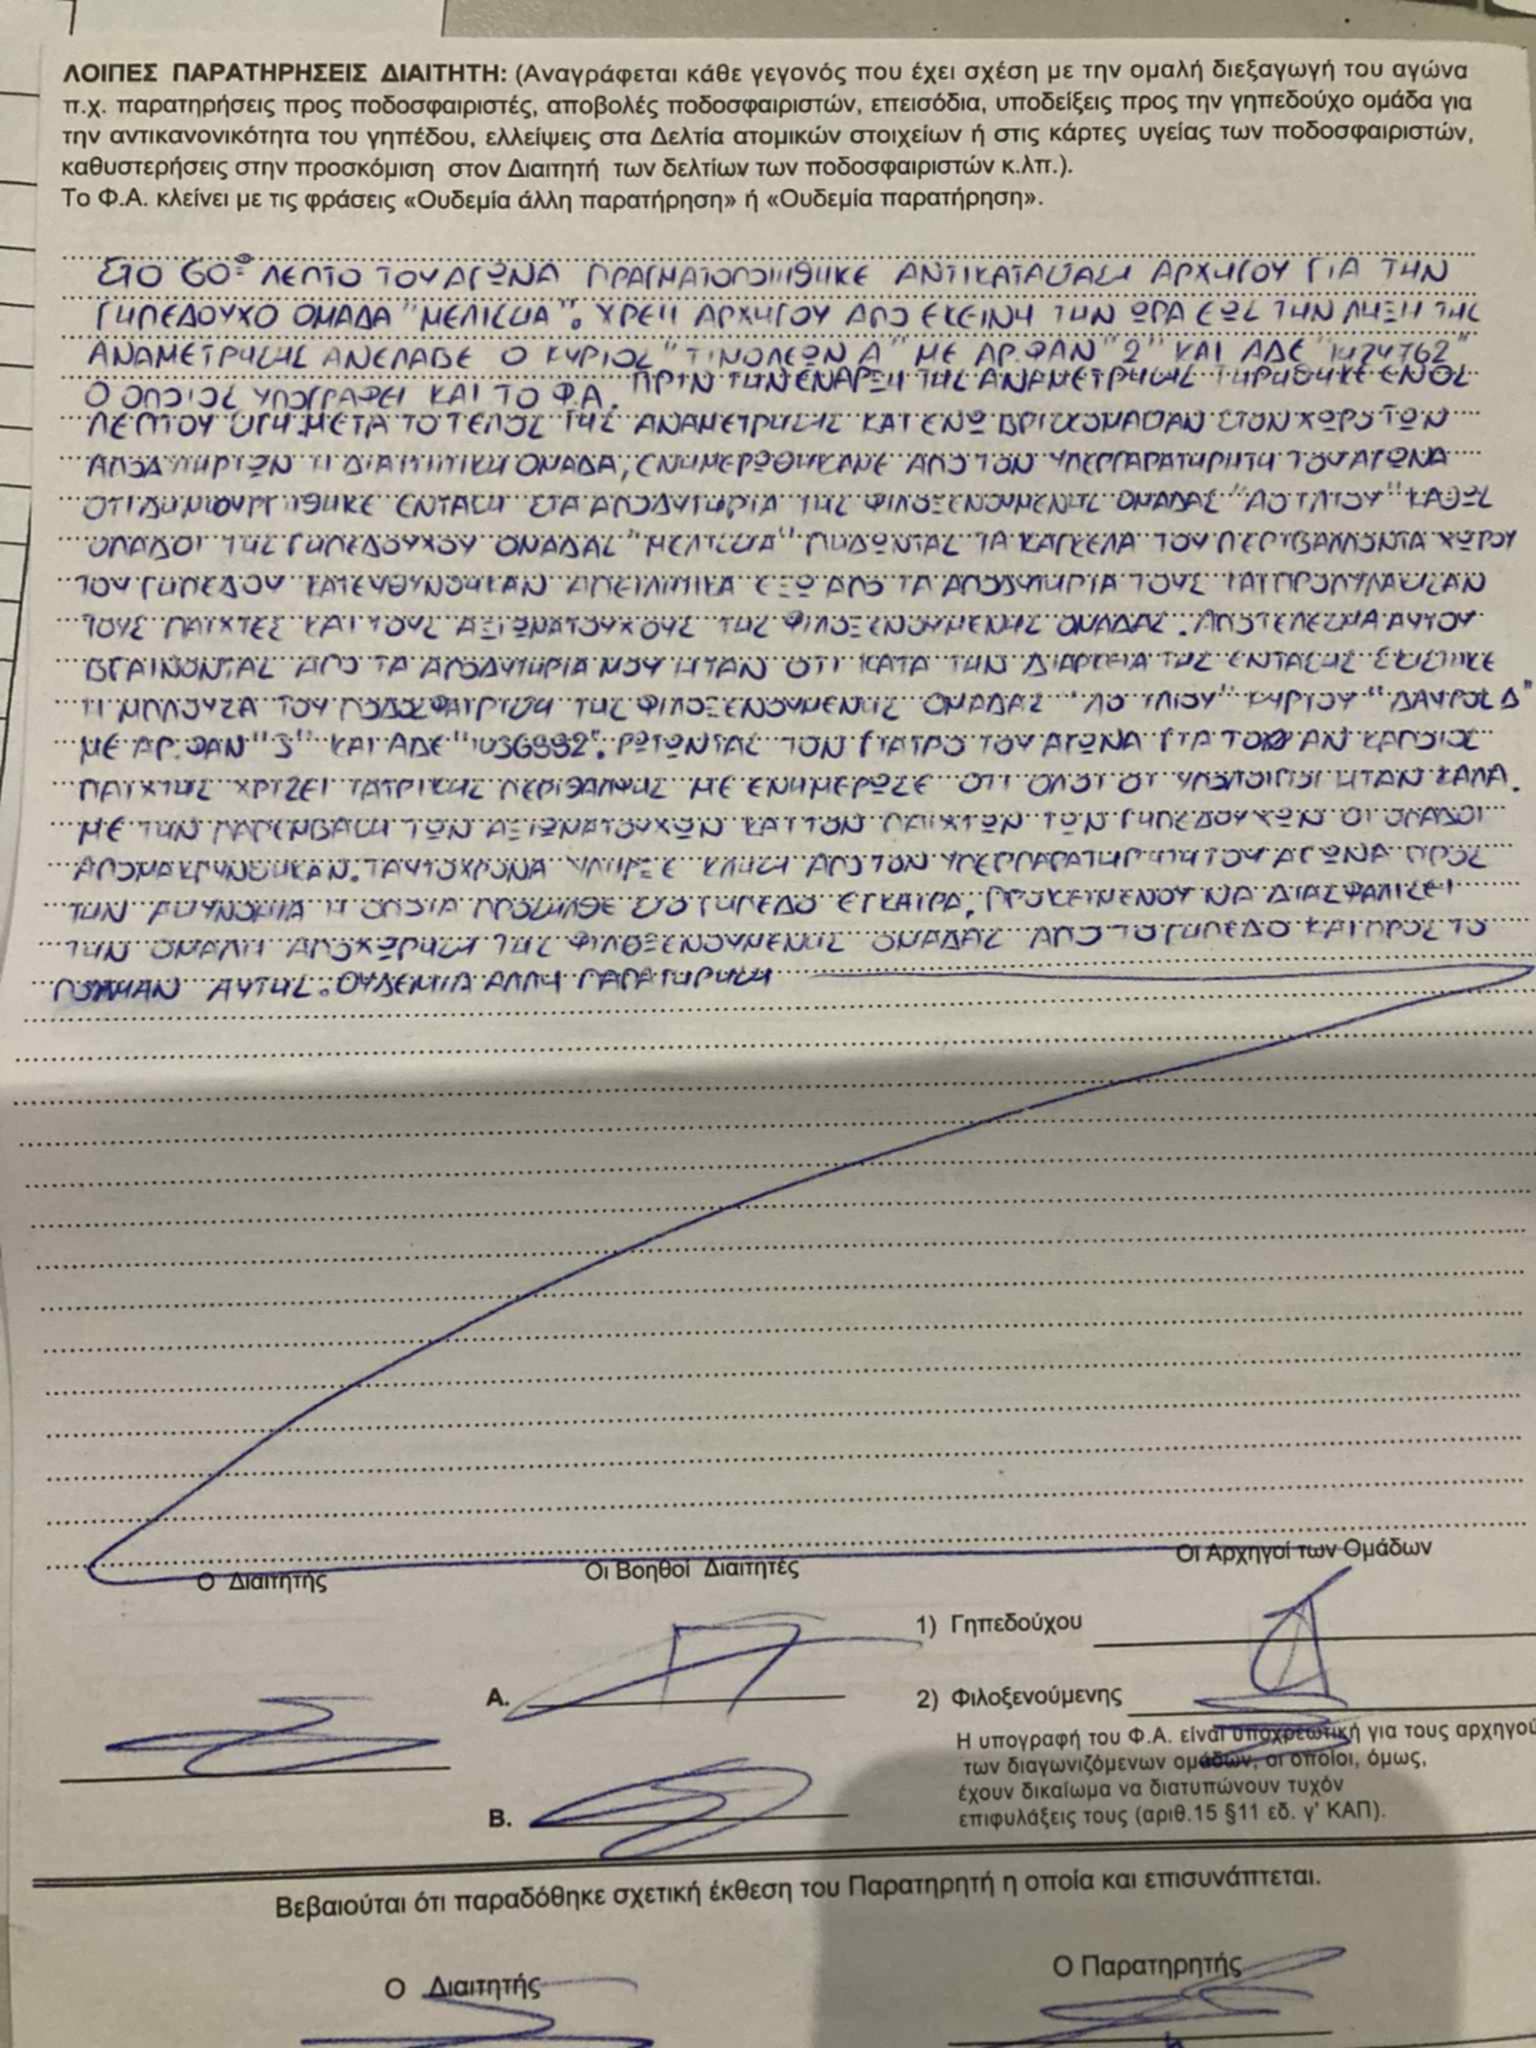 ΛΟΙΠΕΣ ΠΑΡΑΤΗΡΗΣΕΙΣ ΔΙΑΙΤΗΤΗ: (Αναγράφεται κάθε γεγονός που έχει σχέση με την ομαλή διεξαγωγή του αγώνα
π.χ. παρατηρήσεις προς ποδοσφαιριστές, αποβολές ποδοσφαιριστών, επεισόδια, υποδείξεις προς την γηπεδούχο ομάδα για
την αντικανονικότητα του γηπέδου, ελλείψεις στα Δελτία ατομικών στοιχείων ή στις κάρτες υγείας των ποδοσφαιριστών,
καθυστερήσεις στην προσκόμιση στον Διαιτητή των δελτίων των ποδοσφαιριστών κ.λπ.).
Το Φ.Α. κλείνει με τις φράσεις «Ουδεμία άλλη παρατήρηση» ή «Ουδεμία παρατήρηση».
ΣΤΟ 60º ΛΕΠΤΟ ΤΟΥ ΑΓΩΝΑ ΠΡΑΓΜΑΤΟΠΟΙΗΘΗΚΕ ΑΝΤΙΚΑΤΑΣΤΑΣΗ ΑΡΧΗΓΟΥ ΓΙΑ ΤΗΝ
ΓΗΠΕΔΟΥΧΟ ΟΜΑΔΑ "ΜΕΛΙΣΣΙΑ". ΧΡΕΗ ΑΡΧΗΓΟΥ ΑΠΟ ΕΚΕΙΝΗ ΤΗΝ ΩΡΑ ΕΩΣ ΤΗΝ ΛΗΞΗ ΤΗΣ
ΑΝΑΜΕΤΡΗΣΗΣ ΑΝΕΛΑΒΕ Ο ΚΥΡΙΟΣ "ΤΙΜΟΛΕΩΝ Α" ΜΕ ΑΡ.ΦΑΝ "2" ΚΑΙ ΑΔΕ "1474762"
Ο ΟΠΟΙΟΣ ΥΠΟΓΡΑΦΕΙ ΚΑΙ ΤΟ Φ.Α. ΠΡΙΝ ΤΗΝ ΕΝΑΡΞΗ ΤΗΣ ΑΝΑΜΕΤΡΗΣΗΣ ΤΗΡΗΘΗΚΕ ΕΝΟΣ
ΛΕΠΤΟΥ ΣΙΓΗ. ΜΕΤΑ ΤΟ ΤΕΛΟΣ ΤΗΣ ΑΝΑΜΕΤΡΗΣΗΣ ΚΑΙ ΕΝΩ ΒΡΙΣΚΟΜΑΣΤΑΝ ΣΤΟΝ ΧΩΡΟ ΤΩΝ
ΑΠΟΔΥΤΗΡΙΩΝ Η ΔΙΑΙΤΗΤΙΚΗ ΟΜΑΔΑ, ΕΝΗΜΕΡΩΘΗΚΑΜΕ ΑΠΟ ΤΟΝ ΥΠΕΡΠΑΡΑΤΗΡΗΤΗ ΤΟΥ ΑΓΩΝΑ
ΟΤΙ ΔΗΜΙΟΥΡΓΗΘΗΚΕ ΕΝΤΑΣΗ ΣΤΑ ΑΠΟΔΥΤΗΡΙΑ ΤΗΣ ΦΙΛΟΞΕΝΟΥΜΕΝΗΣ ΟΜΑΔΑΣ "ΛΟ ΙΛΙΟΥ" ΚΑΘΩΣ
ΟΠΑΔΟΙ ΤΗΣ ΓΗΠΕΔΟΥΧΟΥ ΟΜΑΔΑΣ "ΜΕΛΙΣΣΙΑ" ΠΗΔΩΝΤΑΣ ΤΑ ΚΑΓΚΕΛΑ ΤΟΥ ΠΕΡΙΒΑΛΛΟΝΤΑ ΧΩΡΟΥ
ΤΟΥ ΓΗΠΕΔΟΥ ΚΑΤΕΥΘΥΝΘΗΚΑΝ ΑΠΕΙΛΗΤΙΚΑ ΕΞΩ ΑΠΟ ΤΑ ΑΠΟΔΥΤΗΡΙΑ ΤΟΥΣ ΚΑΙ ΠΡΟΠΥΛΑΚΙΣΑΝ
ΤΟΥΣ ΠΑΙΧΤΕΣ ΚΑΙ ΤΟΥΣ ΑΞΙΩΜΑΤΟΥΧΟΥΣ ΤΗΣ ΦΙΛΟΞΕΝΟΥΜΕΝΗΣ ΟΜΑΔΑΣ. ΑΠΟΤΕΛΕΣΜΑ ΑΥΤΟΥ
ΒΓΑΙΝΟΝΤΑΣ ΑΠΟ ΤΑ ΑΠΟΔΥΤΗΡΙΑ ΜΟΥ ΗΤΑΝ ΟΤΙ ΚΑΤΑ ΤΗΝ ΔΙΑΡΚΕΙΑ ΤΗΣ ΕΝΤΑΣΗΣ ΣΚΙΣΤΗΚΕ
Η ΜΠΛΟΥΖΑ ΤΟΥ ΠΟΔΟΣΦΑΙΡΙΣΤΗ ΤΗΣ ΦΙΛΟΞΕΝΟΥΜΕΝΗΣ ΟΜΑΔΑΣ "ΛΟ ΙΛΙΟΥ" ΚΥΡΙΟΥ "ΔΑΥΡΟΣ Δ"
ΜΕ ΑΡ.ΦΑΝ "3" ΚΑΙ ΑΔΕ "1036992". ΡΩΤΩΝΤΑΣ ΤΟΝ ΓΙΑΤΡΟ ΤΟΥ ΑΓΩΝΑ ΓΙΑ ΤΟ ΑΝ ΚΑΠΟΙΟΣ
ΠΑΙΧΤΗΣ ΧΡΙΖΕΙ ΙΑΤΡΙΚΗΣ ΠΕΡΙΘΑΛΨΗΣ ΜΕ ΕΝΗΜΕΡΩΣΕ ΟΤΙ ΟΛΟΙ ΟΙ ΥΠΟΛΟΙΠΟΙ ΗΤΑΝ ΚΑΛΑ.
ΜΕ ΤΗΝ ΠΑΡΕΜΒΑΣΗ ΤΩΝ ΑΞΙΩΜΑΤΟΥΧΩΝ ΚΑΙ ΤΟΝ ΠΑΙΧΤΩΝ ΤΩΝ ΓΗΠΕΔΟΥΧΩΝ ΟΙ ΟΠΑΔΟΙ
ΑΠΟΜΑΚΡΥΝΘΗΚΑΝ. ΤΑΥΤΟΧΡΟΝΑ ΥΠΗΡΞΕ ΚΛΗΣΗ ΑΠΟ ΤΟΝ ΥΠΕΡΠΑΡΑΤΗΡΗΤΗ ΤΟΥ ΑΓΩΝΑ ΠΡΟΣ
ΤΗΝ ΑΣΤΥΝΟΜΙΑ Η ΟΠΟΙΑ ΠΡΟΣΗΛΘΕ ΣΤΟ ΓΗΠΕΔΟ ΕΓΚΑΙΡΑ, ΠΡΟΚΕΙΜΕΝΟΥ ΝΑ ΔΙΑΣΦΑΛΙΣΕΙ
ΤΗΝ ΟΜΑΛΗ ΑΠΟΧΩΡΗΣΗ ΤΗΣ ΦΙΛΟΞΕΝΟΥΜΕΝΗΣ ΟΜΑΔΑΣ ΑΠΟ ΤΟ ΓΗΠΕΔΟ ΚΑΙ ΠΡΟΣ ΤΟ
ΠΟΥΛΜΑΝ ΑΥΤΗΣ. ΟΥΔΕΜΙΑ ΑΛΛΗ ΠΑΡΑΤΗΡΗΣΗ
Ο Διαιτητής Οι Βοηθοί Διαιτητές Οι Αρχηγοί των Ομάδων
1) Γηπεδούχου
Α. 2) Φιλοξενούμενης
Η υπογραφή του Φ.Α. είναι υποχρεωτική για τους αρχηγού
των διαγωνιζόμενων ομάδων, οι οποίοι, όμως,
έχουν δικαίωμα να διατυπώνουν τυχόν
Β. επιφυλάξεις τους (αριθ.15 §11 εδ. γ' ΚΑΠ).
Βεβαιούται ότι παραδόθηκε σχετική έκθεση του Παρατηρητή η οποία και επισυνάπτεται.
Ο Διαιτητής Ο Παρατηρητής